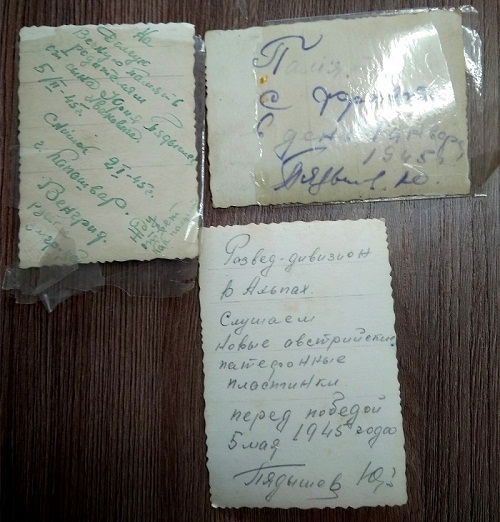 На
долгую
Вечную память
родителям
от сына Юрия Пядышева
5/III-45г.
снимок 2/I-45г.
г. Капошвар.
Венгрия.
Память
с фронта
6 день января
1945г
Пядышев Ю.
Развед-дивизион
в Альпах.
Слушаем
новые австрийские
патефонные
пластинки.
перед победой
5 мая 1945 года
Пядышев Ю.